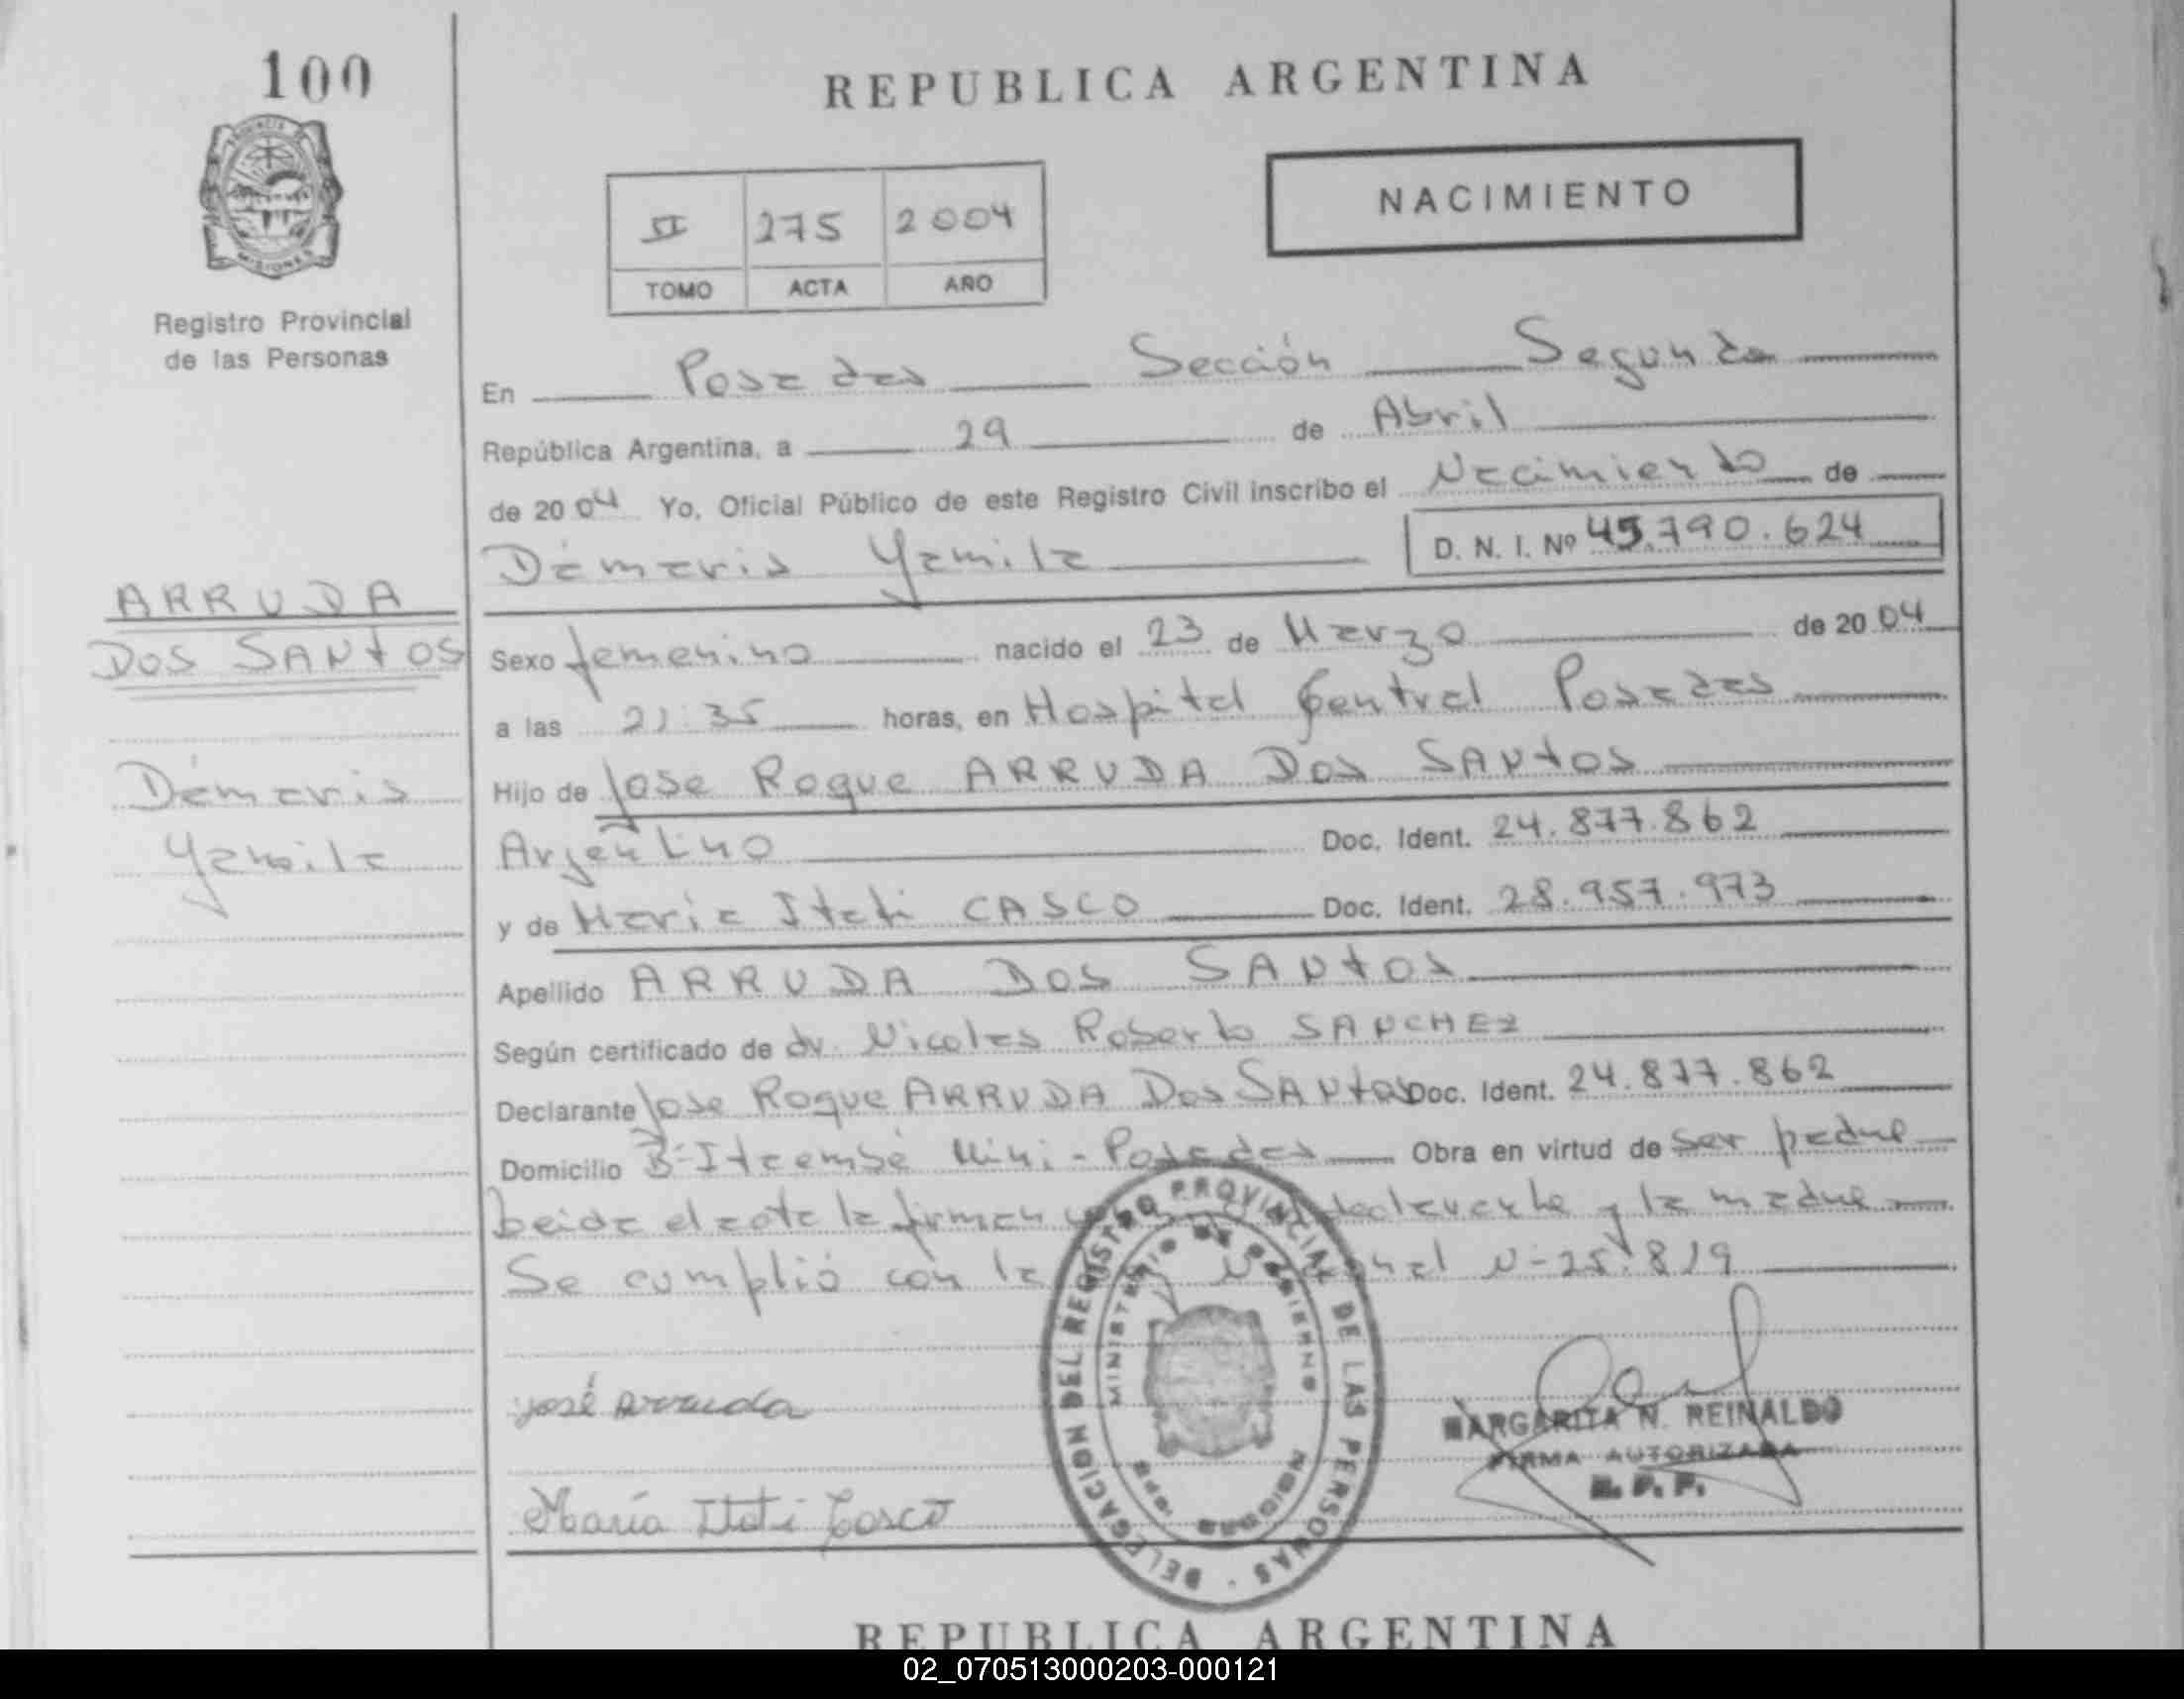 100
REPUBLICA ARGENTINA
NACIMIENTO
II 275 2004
TOMO ACTA AÑO
MISIONES
Registro Provincial
de las Personas
En Posadas Sección Segunda
República Argentina, a 29 de Abril
de 2004 Yo, Oficial Público de este Registro Civil inscribo el Nacimiento de
Dámaris Yamila D. N. I. Nº 45.790.624
ARRUDA
DOS SANtOS
Dámaris
Yamila
Sexo femenino nacido el 23 de Marzo de 2004
a las 21:35 horas, en Hospital Central Posadas
Hijo de Jose Roque ARRUDA DOS SANtOS
Argentino Doc. Ident. 24.877.862
y de Maria Itati CASCO Doc. Ident. 28.957.973
Apellido ARRUDA DOS SANtOS
Según certificado de dr. Nicolas Roberto SANCHEZ
Declarante Jose Roque ARRUDA Dos SANtos Doc. Ident. 24.877.862
Domicilio B-Itaembé Mini-Posadas Obra en virtud de ser padre
Leida el acta la firman declarante y la madre
Se cumplió con la N-25.819
José Arruda
María Itati Casco
DELEGACION DEL REGISTRO PROVINCIAL DE LAS PERSONAS
MINISTERIO DE GOBIERNO
MISIONES
MARGARITA N. REINALDO
FIRMA AUTORIZADA
R. P. P.
REPUBLICA ARGENTINA
02_070513000203-000121